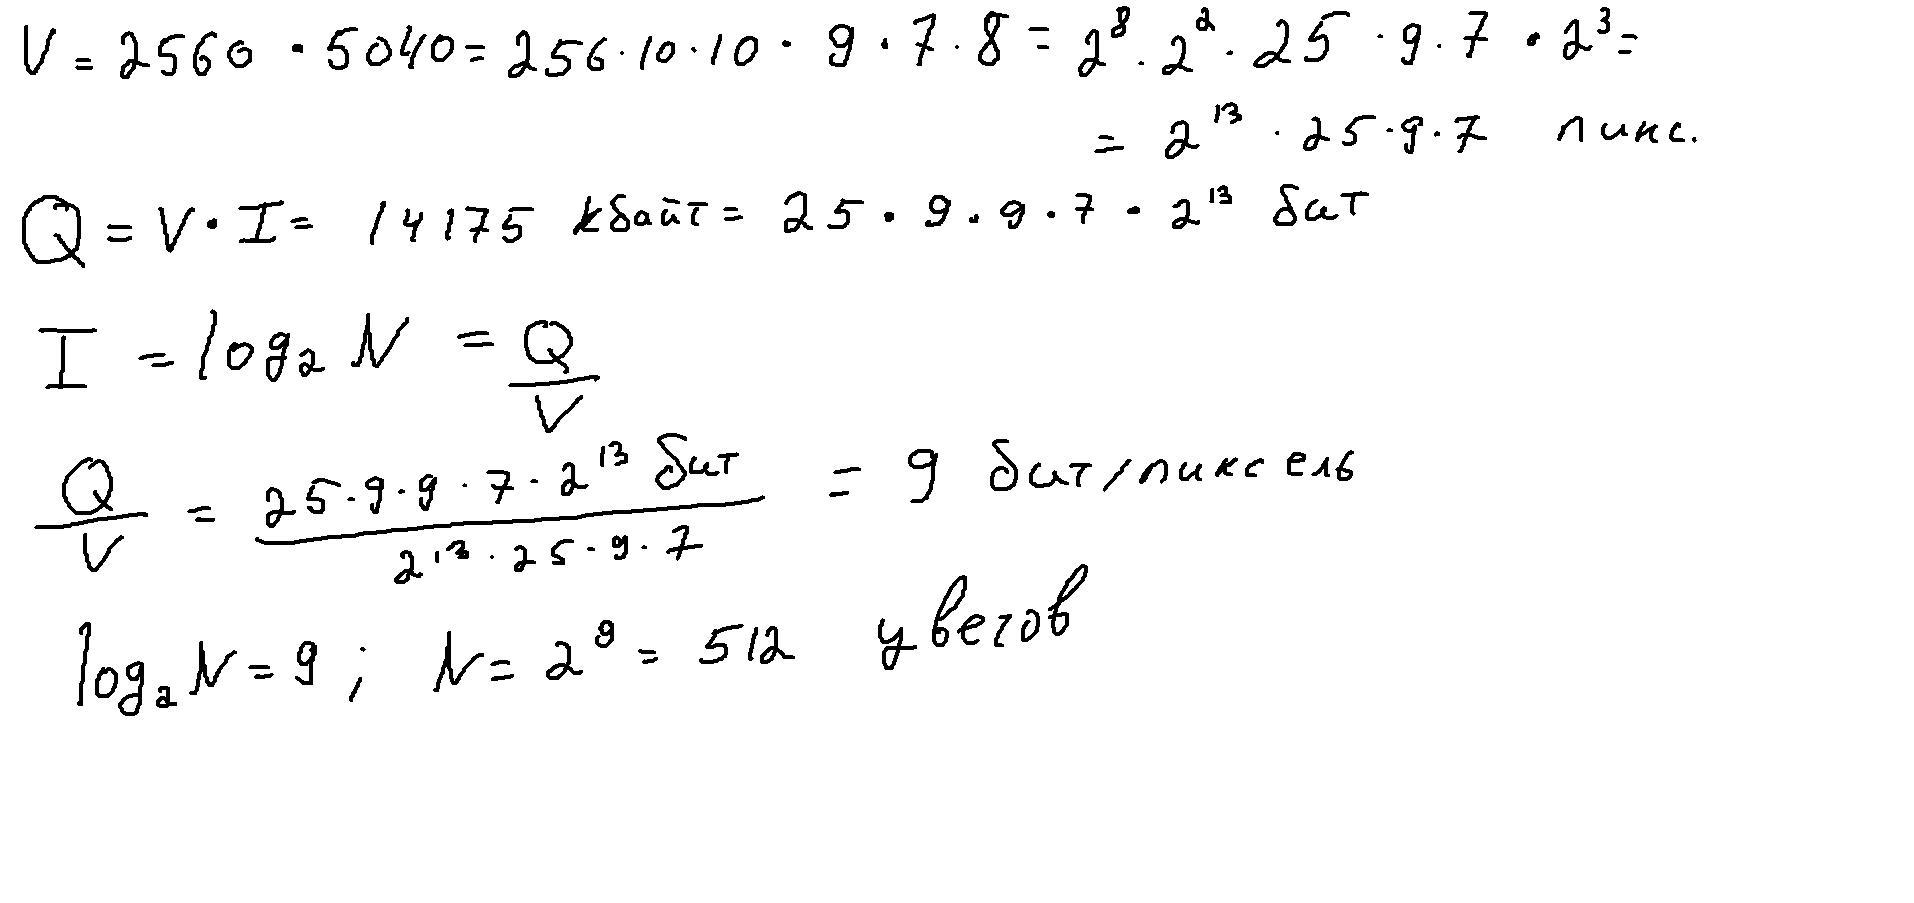 V = 2560 · 5040 = 256 · 10 · 10 · 9 · 7 · 8 = 2⁸ · 2² · 25 · 9 · 7 · 2³ =
= 2¹³ · 25 · 9 · 7 пикс.
Q = V · I = 14175 кбайт = 25 · 9 · 9 · 7 · 2¹³ бит
I = log₂ N = Q/V
Q/V = (25 · 9 · 9 · 7 · 2¹³ бит)/(2¹³ · 25 · 9 · 7) = 9 бит/пиксель
log₂ N = 9 ; N = 2⁹ = 512 цветов